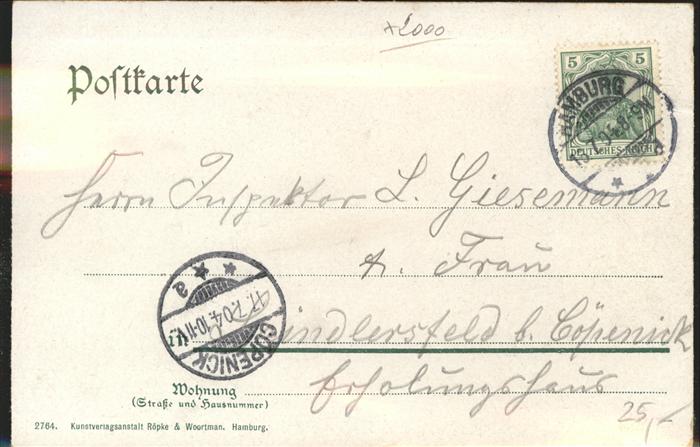 x2000
Postkarte
5 5
DEUTSCHES REICH
HAMBURG
7.04.8-9N
Herrn Inspektor L. Giesemann
u. Frau
in Spindlersfeld b. Cöpenick
Erholungshaus
CÖPENICK
17.7.04.10-11V.
a
Wohnung
(Straße und Hausnummer)
25,-
2764. Kunstverlagsanstalt Röpke & Woortman. Hamburg.